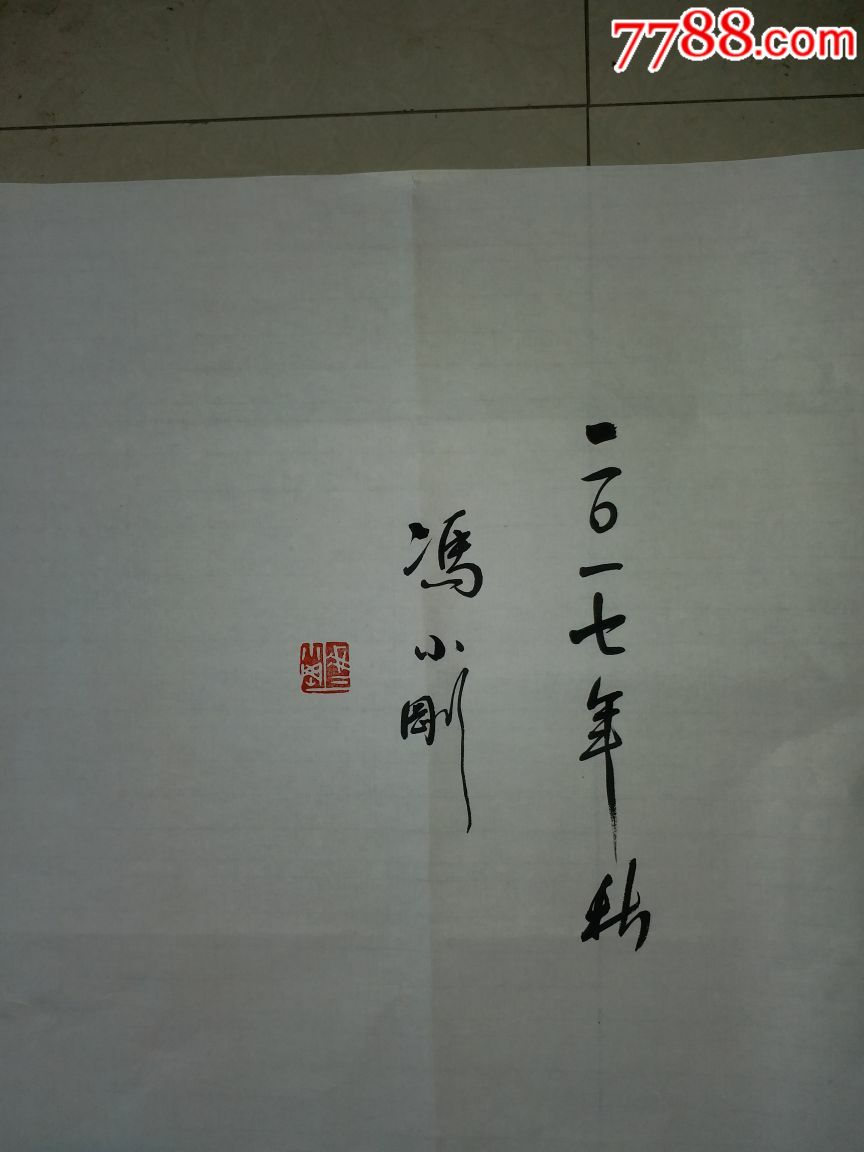 7788.com
二〇一七年秋
馮小剛